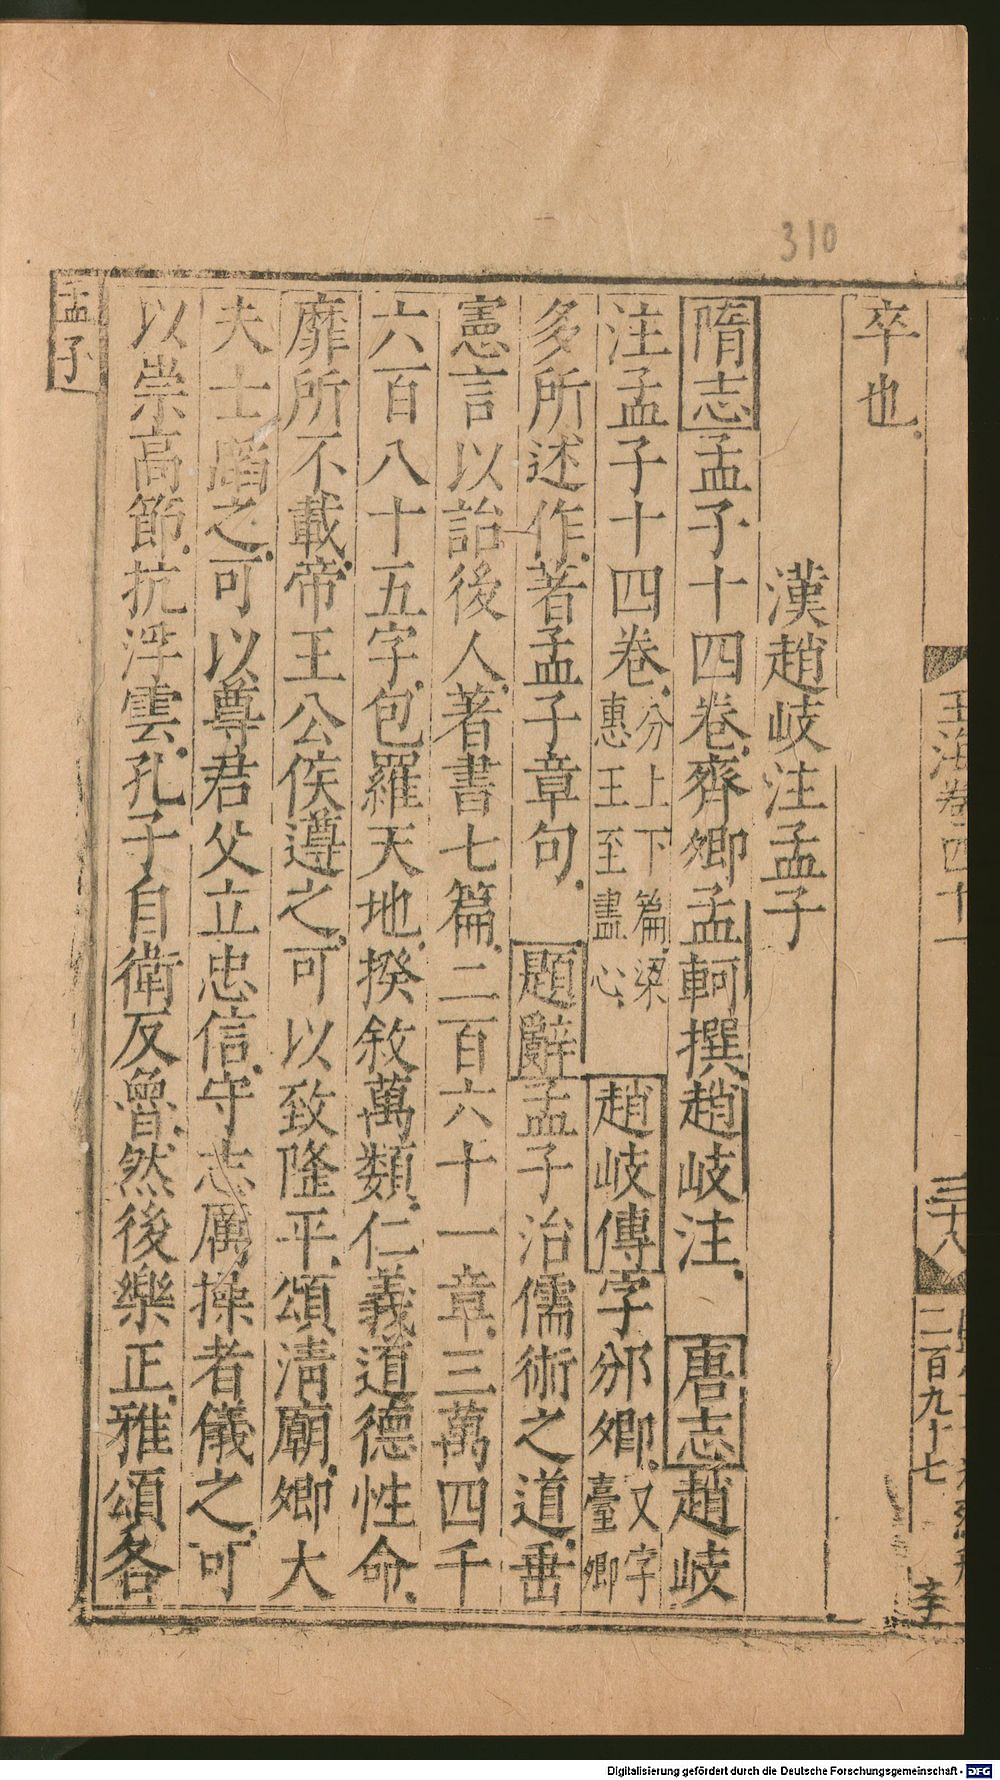 310
卒也
漢趙岐注孟子
隋志孟子十四卷齊卿孟軻撰趙岐注 唐志趙岐
注孟子十四卷分上下篇梁惠王至盡心 趙岐傳字邠卿又字臺卿
多所述作著孟子章句 題辭孟子治儒術之道垂
憲言以詒後人著書七篇二百六十一章三萬四千
六百八十五字包羅天地揆敘萬類仁義道德性命
靡所不載帝王公侯遵之可以致隆平頌淸廟卿大
夫士蹈之可以尊君父立忠信守志厲操者儀之可
以崇高節抗浮雲孔子自衛反魯然後樂正雅頌各
孟子
玉海卷四十一
三十八
二百九十七
李
Digitalisierung gefördert durch die Deutsche Forschungsgemeinschaft - DFG